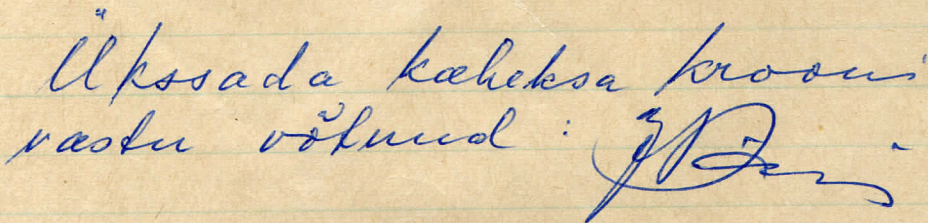 Ükssada kaheksa krooni
vastu võtnud :